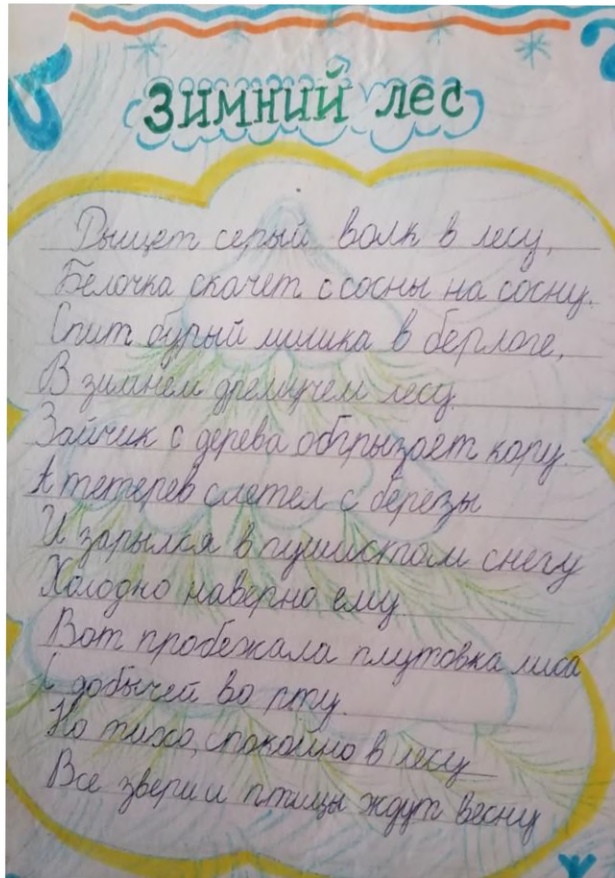 Зимний лес
Рыщет серый волк в лесу,
Белочка скачет с сосны на сосну.
Спит бурый мишка в берлоге,
В зимнем дремучем лесу.
Зайчик с дерева обгрызает кору.
А тетерев слетел с березы
И зарылся в пушистом снегу
Холодно наверно ему
Вот пробежала плутовка лиса
С добычей во рту.
Но тихо, спокойно в лесу
Все звери и птицы ждут весну